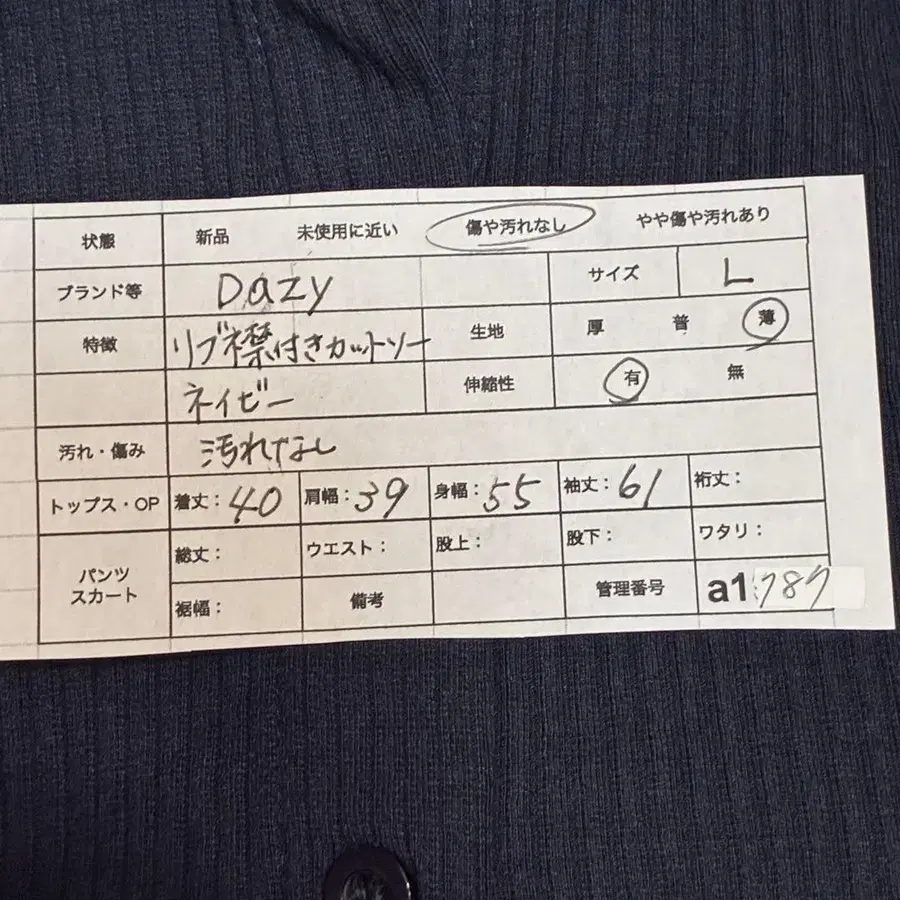 状態 新品 未使用に近い 傷や汚れなし やや傷や汚れあり
ブランド等 Dazy サイズ L
特徴 リブ襟付きカットソー 生地 厚 普 薄
ネイビー 伸縮性 有 無
汚れ・傷み 汚れなし
トップス・OP 着丈：40 肩幅：39 身幅：55 袖丈：61 裄丈：
パンツ スカート 総丈： ウエスト： 股上： 股下： ワタリ：
裾幅： 備考 管理番号 a1:787